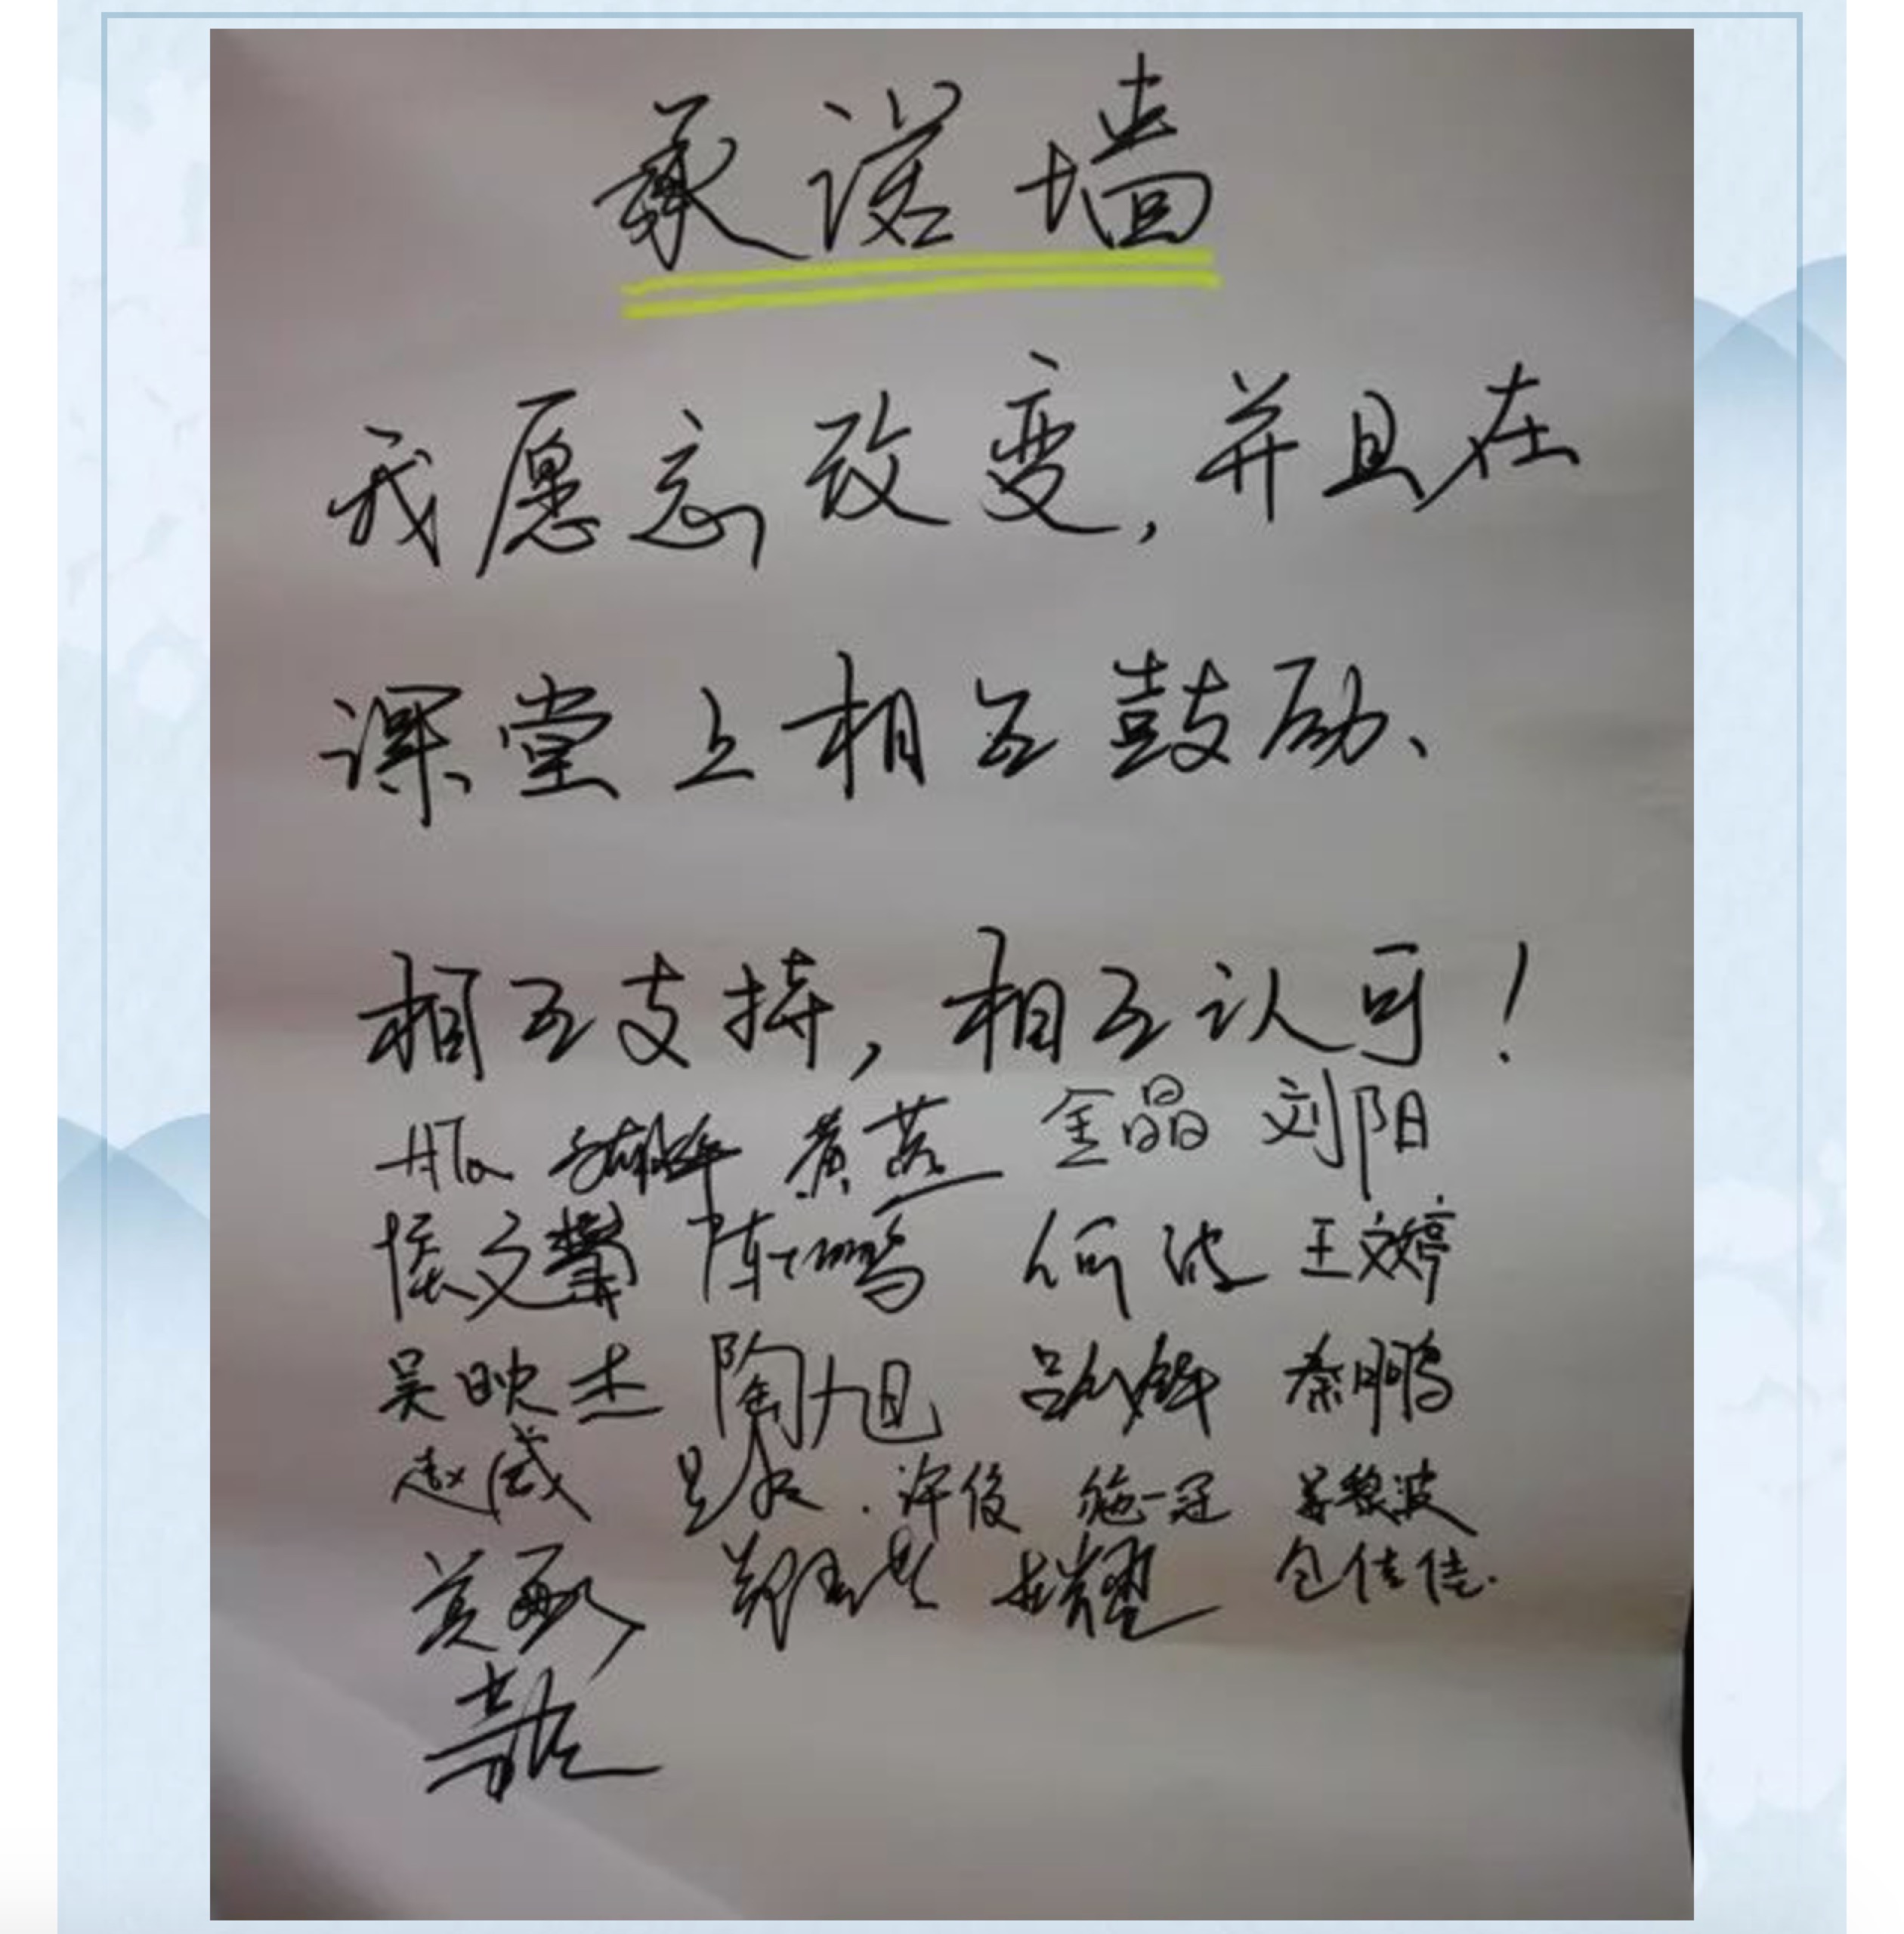 承诺墙
我愿意改变，并且在
课堂上相互鼓励、
相互支持，相互认可！
黄燕 金晶 刘阳
陈鹏 何波 王文婷
吴映杰 陶旭 秦鹏
赵威 许俊 施一冠
仓佳佳.